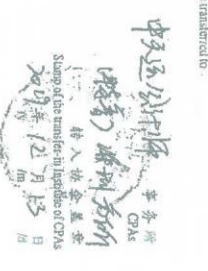 transferred to
中天运会计师 事务所
CPAs
(特普) 深圳分所
转入协会盖章
Stamp of the transfer-in Institute of CPAs
2019年12月13日
/m /d